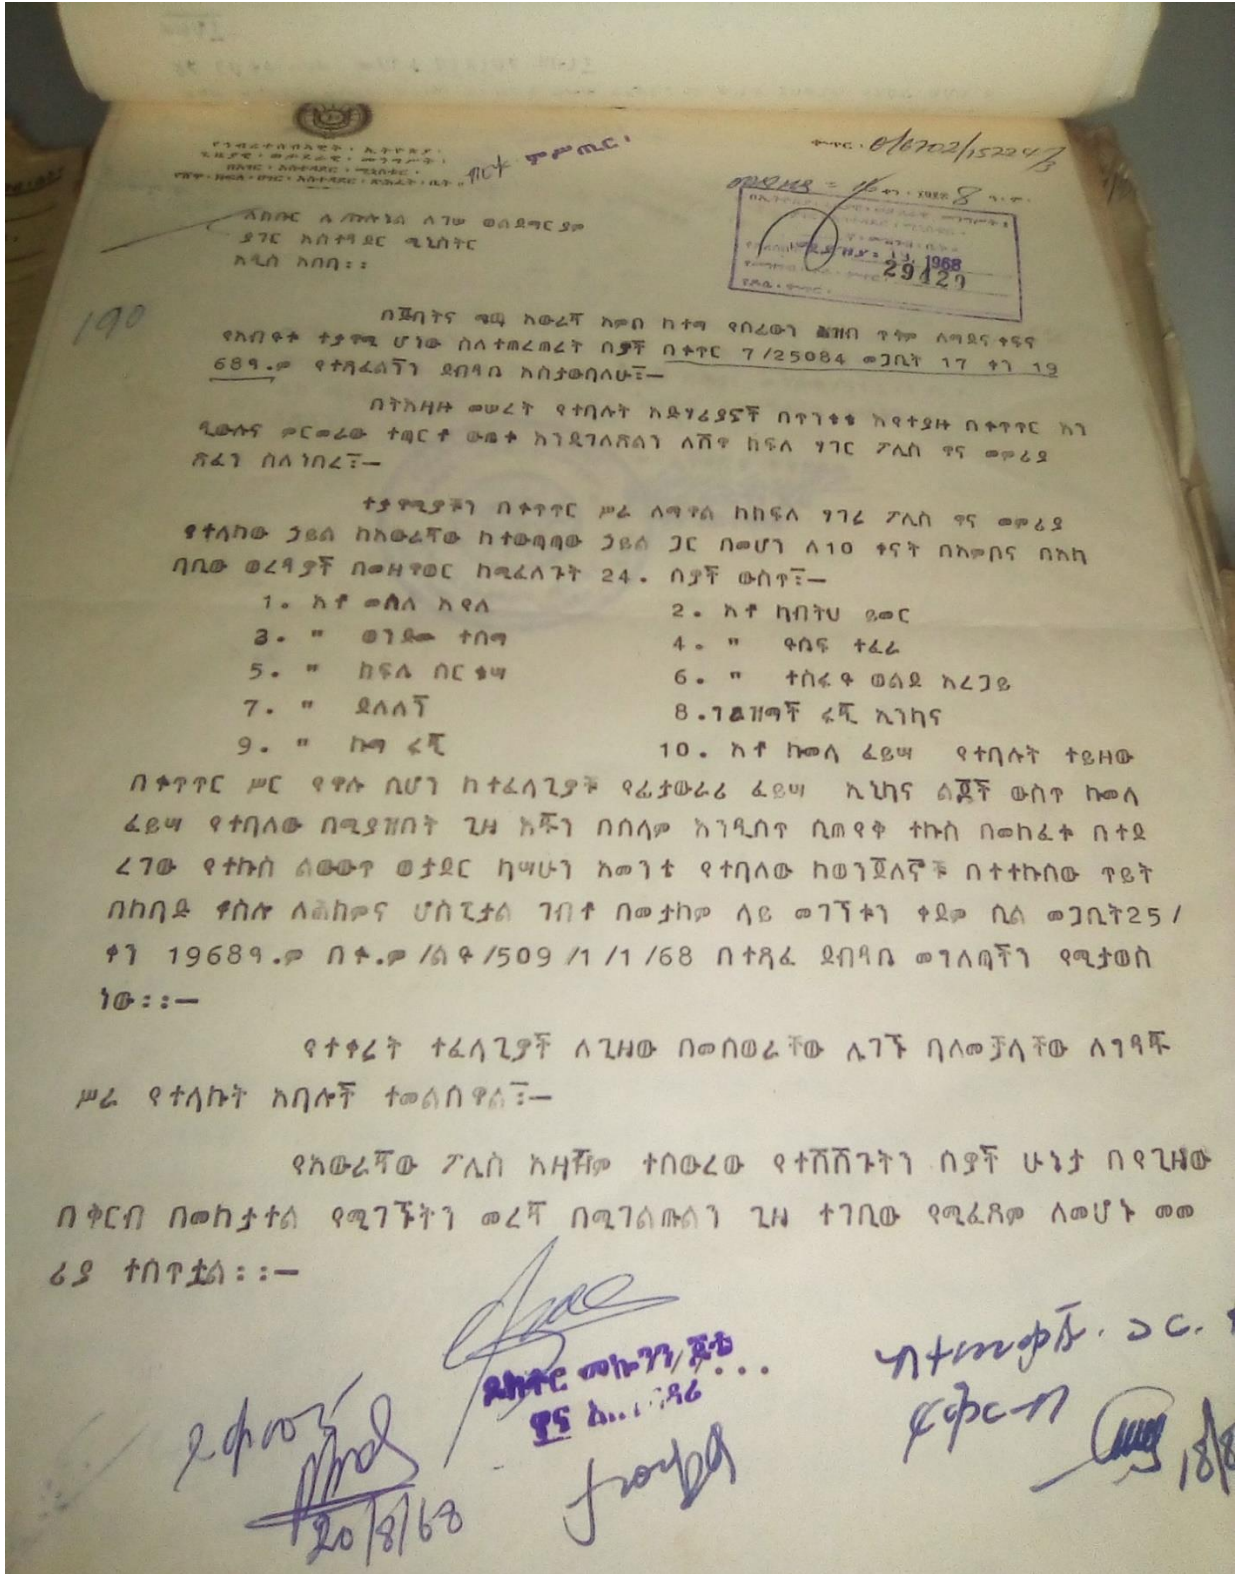 የኅብረተሰብአዊት ፡ ኢትዮጵያ ፡
ጊዜያዊ ፡ ወታደራዊ ፡ መንግሥት ፡
የአገር ፡ አስተዳደር ፡ ሚኒስቴር ፡
የሸዋ ፡ ክፍለ ፡ ሀገር ፡ አስተዳደር ፡ ጽሕፈት ፡ ቤት ።
ብርቱ ምሥጢር ፡
ቁጥር ፡ 0/6702/15224/3
ቀን ፡ ፲፱፻፷8 ዓ ፡ ም ፡
ለክቡር ሌ ኮሎኔል ለገሠ ወልደማርያም
ያገር አስተዳደር ሚኒስትር
አዲስ አበባ፡፡
1968
29429
190
በጅባትና ሜጫ አውራጃ አምቦ ከተማ የሰፊውን ሕዝብ ጥቅም ለማዳና ቀፍና
የአብዮቱ ተቃዋሚ ሆነው ስለተጠረጠሩት ሰዎች በቁጥር 7/25084 መጋቢት 17 ቀን 19
689.ም የተጻፈልኝን ደብዳቤ አስታውሳለሁ፤—
በትእዛዙ መሠረት የተባሉት አድሃሪያኖች በጥንቃቄ እየተያዙ በቁጥጥር እን
ዲውሉና ምርመራው ተጣርቶ ውጤቱ እንዲገለጽልን ለሸዋ ክፍለ ሃገር ፖሊስ ዋና መምሪያ
ጽፈን ስለነበረ፤—
ተቃዋሚያቹን በቁጥጥር ሥራ ለማዋል ከክፍለ ሃገሩ ፖሊስ ዋና መምሪያ
የተላከው ኃይል ከአውራጃው ከተውጣጣው ኃይል ጋር በመሆን ለ10 ቀናት በአምቦና በአካ
ባቢው ወረዳዎች በመዘዋወር ከሚፈለጉት 24. ሰዎች ውስጥ፤—
1. አቶ መስለ አየለ
2. አቶ ካብትህ ይመር
3. " ወንድሙ ተሰማ
4. " ዮሴፍ ተፈራ
5. " ክፍሌ በርቁሣ
6. " ተስፋዬ ወልደ አረጋይ
7. " ደለለኝ
8. ገ/አዝማች ሩጂ ኢንካና
9. " ኩማ ሩጂ
10. አቶ ከመላ ፈይሣ የተባሉት ተይዘው
በቁጥጥር ሥር የዋሉ ሲሆን ከተፈላጊዎቹ የፊታውራሪ ፈይሣ ኢንካና ልጆች ውስጥ ከመላ
ፈይሣ የተባለው በሚያዝበት ጊዜ እጁን በሰላም እንዲሰጥ ሲጠየቅ ተኩስ በመክፈቱ በተደ
ረገው የተኩስ ልውውጥ ወታደር ካሣሁን አመንቴ የተባለው ከወንጀለኞቹ በተተኩሰው ጥይት
በከባድ ቆስሎ ለሕክምና ሆስፒታል ገብቶ በመታከም ላይ መገኘቱን ቀደም ሲል መጋቢት25/
ቀን 19689.ም በቁ.ም/ልዩ/509/1/1/68 በተጻፈ ደብዳቤ መገለጣችን የሚታወስ
ነው፡፡—
የተቀሩት ተፈላጊዎች ለጊዜው በመሰወራቸው ሊገኙ ባለመቻላቸው ለግዳጁ
ሥራ የተላኩት አባሎች ተመልሰዋል፤—
የአውራጃው ፖሊስ አዛዥም ተሰውረው የተሸሸጉትን ሰዎች ሁኔታ በየጊዜው
በቅርብ በመከታተል የሚገኙትን መረጃ በሚገልጡልን ጊዜ ተገቢው የሚፈጸም ለመሆኑ መመ
ሪያ ተሰጥቷል፡፡—
ዶክተር መኰንን ጆቴ
ዋና አስተዳዳሪ
ይቀመጥ
20/8/68
ከተመቃሹ ጋር
ይቅርብ
18/8